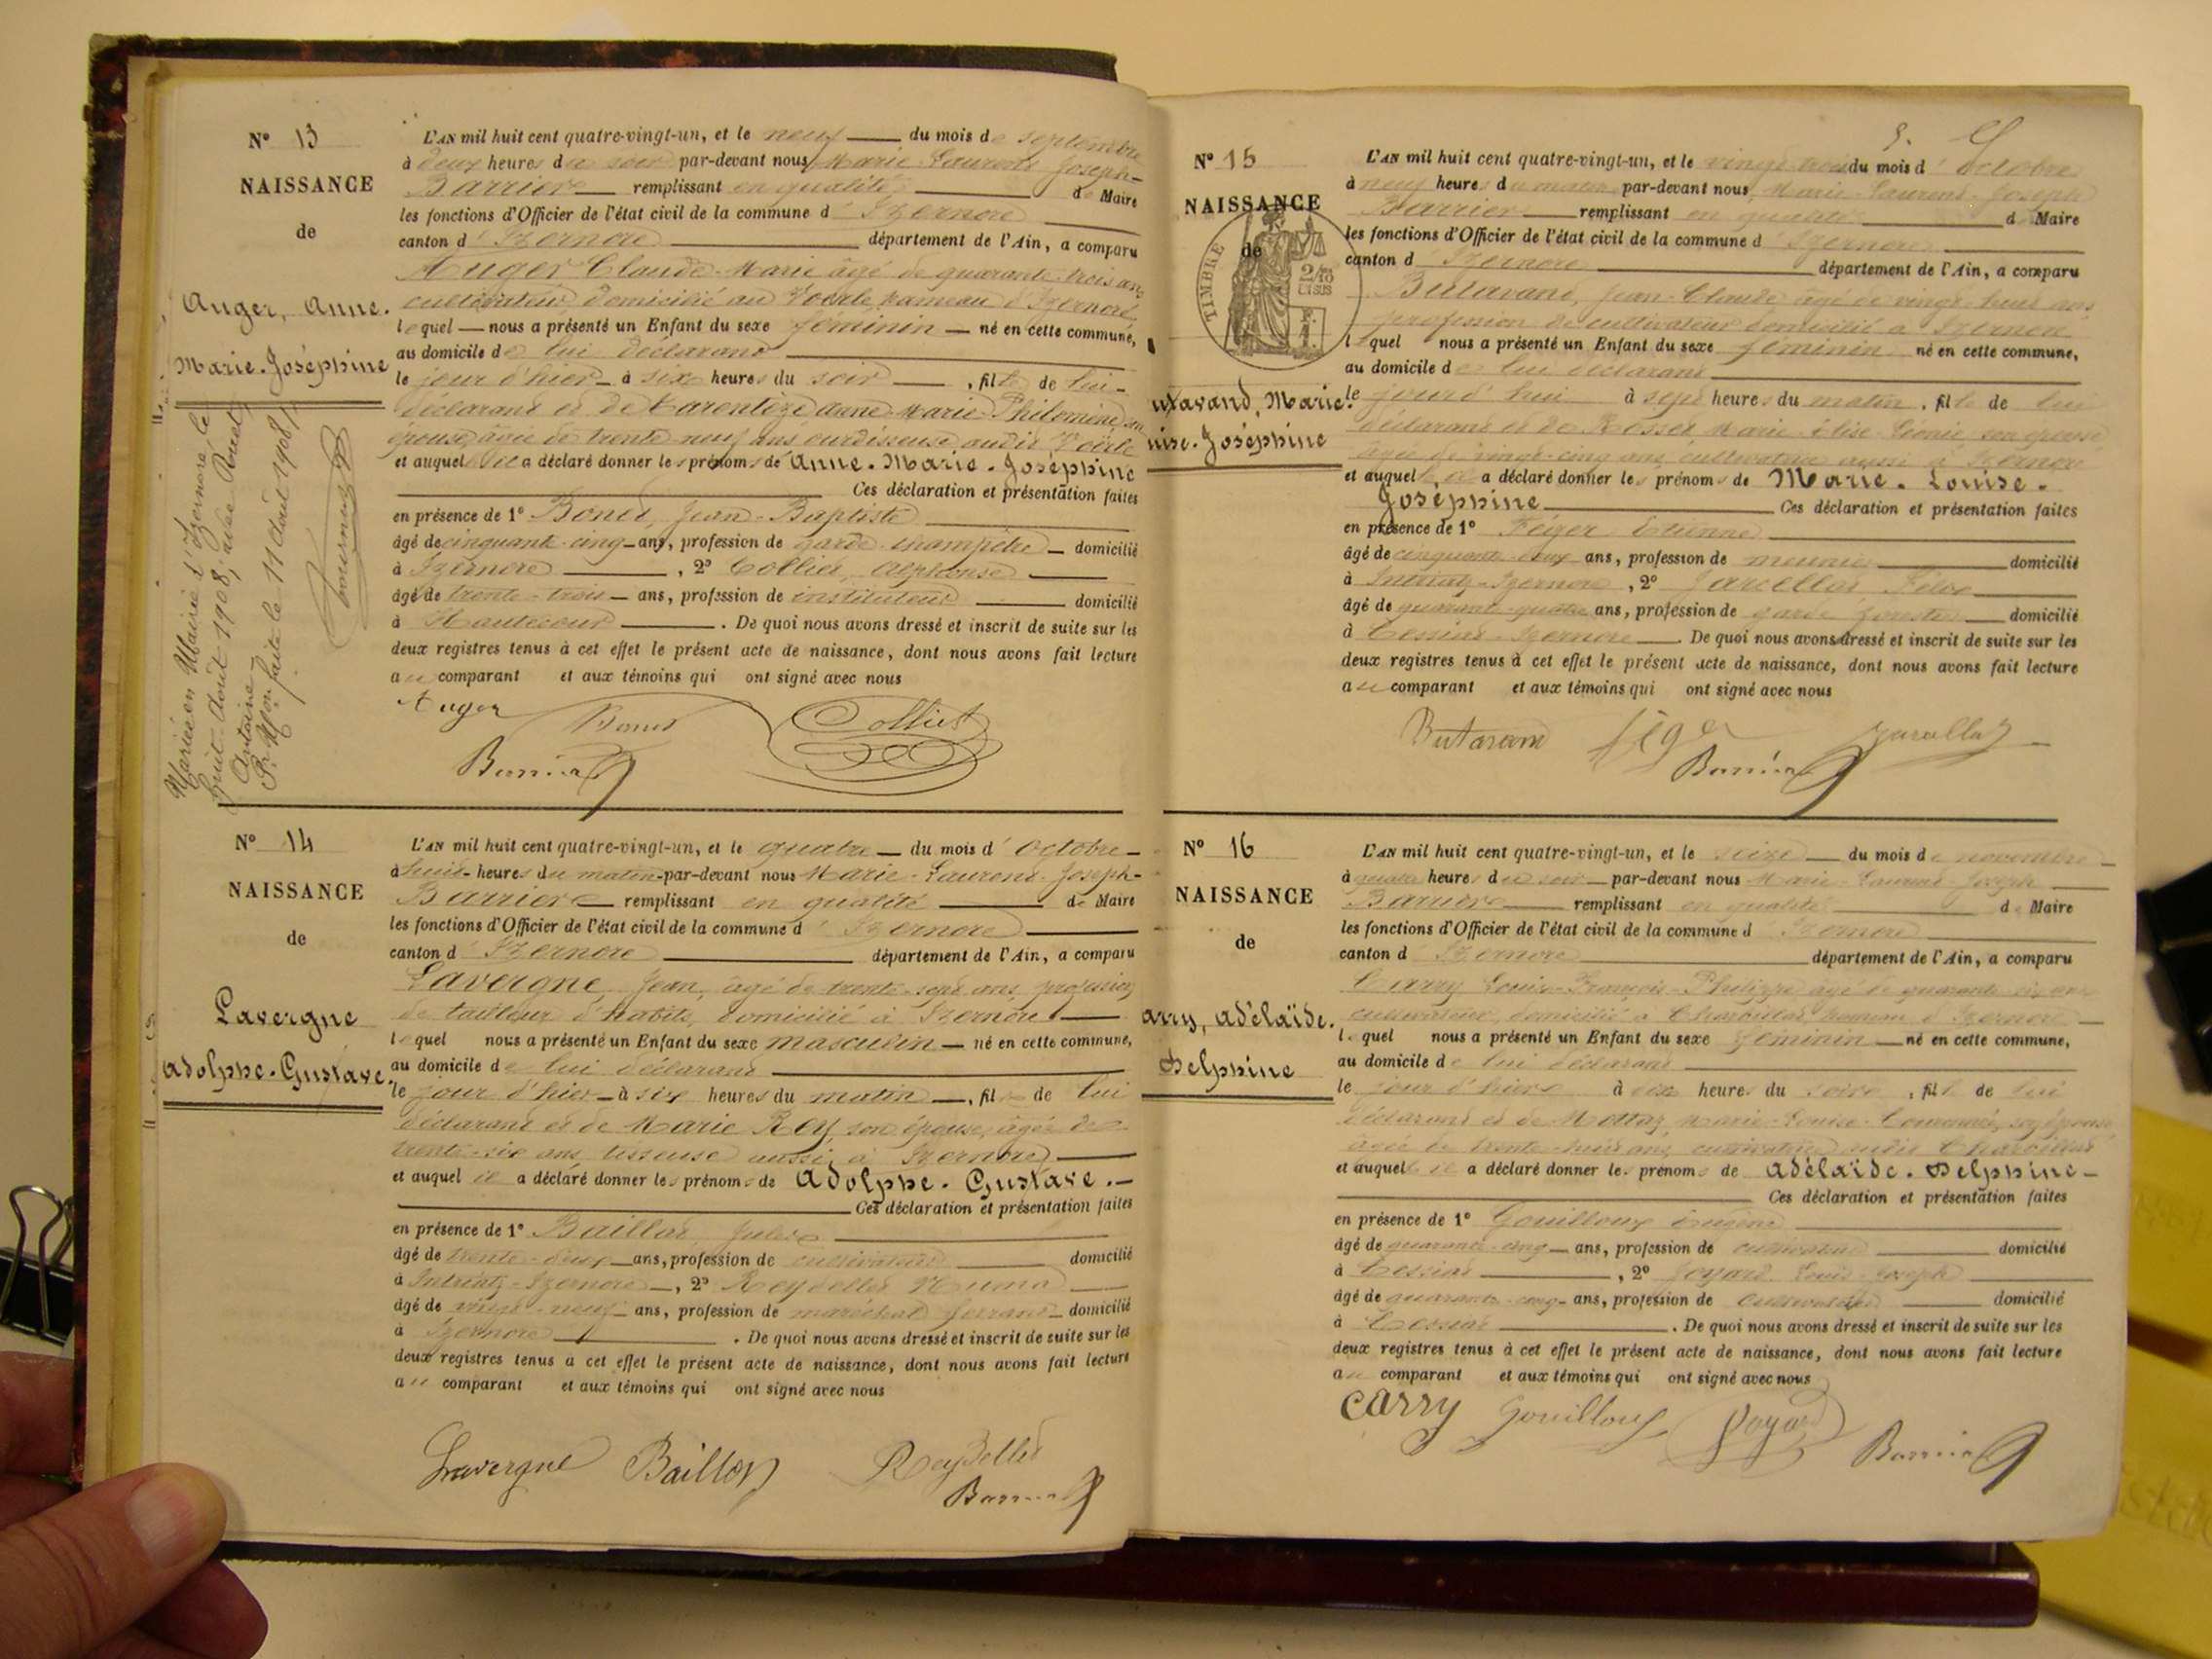 N° 13
NAISSANCE
de
Auger, Anne.
Marie-Joséphine
Mariée en Mairie d'Izernore le
huit Août 1908, avec
Antoine
Pr Mon faite le 11 Août 1908
L'AN mil huit cent quatre-vingt-un, et le neuf du mois de septembre
à deux heures du soir par-devant nous Marie-Laurent-Joseph-
Barrier remplissant en qualité de Maire
les fonctions d'Officier de l'état civil de la commune d'Izernore
canton d'Izernore département de l'Ain, a comparu
Auger Claude-Marie âgé de quarante-trois ans
cultivateur domicilié au Voerle hameau d'Izernore
lequel nous a présenté un Enfant du sexe féminin né en cette commune,
au domicile de lui déclarant
le jour d'hier à six heures du soir, fille de lui-
déclarant et de Tarentèze Anne-Marie-Philomène son
épouse, âgée de trente-neuf ans ourdisseuse audit Voerle
et auquel il a déclaré donner les prénoms de Anne-Marie-Joséphine
Ces déclaration et présentation faites
en présence de 1° Bonet, Jean-Baptiste
âgé de cinquante-cinq ans, profession de garde champêtre domicilié
à Izernore, 2° Colliet, Alphonse
âgé de trente-trois ans, profession de instituteur domicilié
à Hautecour. De quoi nous avons dressé et inscrit de suite sur les
deux registres tenus à cet effet le présent acte de naissance, dont nous avons fait lecture
au comparant et aux témoins qui ont signé avec nous
Auger Bonet Colliet
Barrier
N° 14
NAISSANCE
de
Lavergne
Adolphe-Gustave.
L'AN mil huit cent quatre-vingt-un, et le quatre du mois d'Octobre
à huit heures du matin par-devant nous Marie-Laurent-Joseph-
Barrier remplissant en qualité de Maire
les fonctions d'Officier de l'état civil de la commune d'Izernore
canton d'Izernore département de l'Ain, a comparu
Lavergne, Jean, âgé de trente-sept ans, profession
de tailleur d'habits, domicilié à Izernore
lequel nous a présenté un Enfant du sexe masculin né en cette commune,
au domicile de lui déclarant
le jour d'hier à six heures du matin, fils de lui
déclarant et de Marie Rey, son épouse, âgée de
trente-six ans, tisseuse aussi à Izernore
et auquel il a déclaré donner les prénoms de Adolphe-Gustave.
Ces déclaration et présentation faites
en présence de 1° Baillod, Jules
âgé de trente-deux ans, profession de cultivateur domicilié
à Intriatz-Izernore, 2° Reydellet Numa
âgé de vingt-neuf ans, profession de maréchal ferrant domicilié
à Izernore. De quoi nous avons dressé et inscrit de suite sur les
deux registres tenus à cet effet le présent acte de naissance, dont nous avons fait lecture
au comparant et aux témoins qui ont signé avec nous
Lavergne Baillod Reydellet
Barrier
N° 15
NAISSANCE
de
TIMBRE
2/10
EN SUS
utavand, Marie.
uise-Joséphine
5.
L'AN mil huit cent quatre-vingt-un, et le vingt-trois du mois d'Octobre
à neuf heures du matin par-devant nous, Marie-Laurent-Joseph
Barrier remplissant en qualité de Maire
les fonctions d'Officier de l'état civil de la commune d'Izernore
canton d'Izernore département de l'Ain, a comparu
Butavand, Jean-Claude âgé de vingt-huit ans
profession de cultivateur domicilié à Izernore
lequel nous a présenté un Enfant du sexe féminin né en cette commune,
au domicile de lui déclarant
le jourd'hui à sept heures du matin, fille de lui
déclarant et de Rosset Marie-Elise-Léonie, son épouse
âgée de vingt-cinq ans, cultivatrice aussi à Izernore
et auquel il a déclaré donner les prénoms de Marie-Louise-
Joséphine Ces déclaration et présentation faites
en présence de 1° Féger Etienne
âgé de cinquante-deux ans, profession de meunier domicilié
à Intriatz-Izernore, 2° Jarcellat, Félix
âgé de quarante-quatre ans, profession de garde forestier domicilié
à Cessiat-Izernore. De quoi nous avons dressé et inscrit de suite sur les
deux registres tenus à cet effet le présent acte de naissance, dont nous avons fait lecture
au comparant et aux témoins qui ont signé avec nous
Butavand Féger
Barrier
N° 16
NAISSANCE
de
arry, Adélaïde.
Delphine
L'AN mil huit cent quatre-vingt-un, et le seize du mois de novembre
à quatre heures du soir par-devant nous Marie-Laurent-Joseph
Barrier remplissant en qualité de Maire
les fonctions d'Officier de l'état civil de la commune d'Izernore
canton d'Izernore département de l'Ain, a comparu
Carry Louis-François-Philippe âgé de quarante-six ans
cultivateur, domicilié à Charbillat hameau d'Izernore
lequel nous a présenté un Enfant du sexe féminin né en cette commune,
au domicile de lui déclarant
le jour d'hier à dix heures du soir, fille de lui
déclarant et de Mottaz Marie-Louise son épouse
âgée de trente-huit ans, cultivatrice audit Charbillat
et auquel il a déclaré donner les prénoms de Adélaïde-Delphine
Ces déclaration et présentation faites
en présence de 1° Gouilloux Eugène
âgé de quarante-cinq ans, profession de cultivateur domicilié
à Cessiat, 2° Joyard Louis-Joseph
âgé de quarante-cinq ans, profession de cultivateur domicilié
à Cessiat. De quoi nous avons dressé et inscrit de suite sur les
deux registres tenus à cet effet le présent acte de naissance, dont nous avons fait lecture
au comparant et aux témoins qui ont signé avec nous
Carry Gouilloux Joyard Barrier